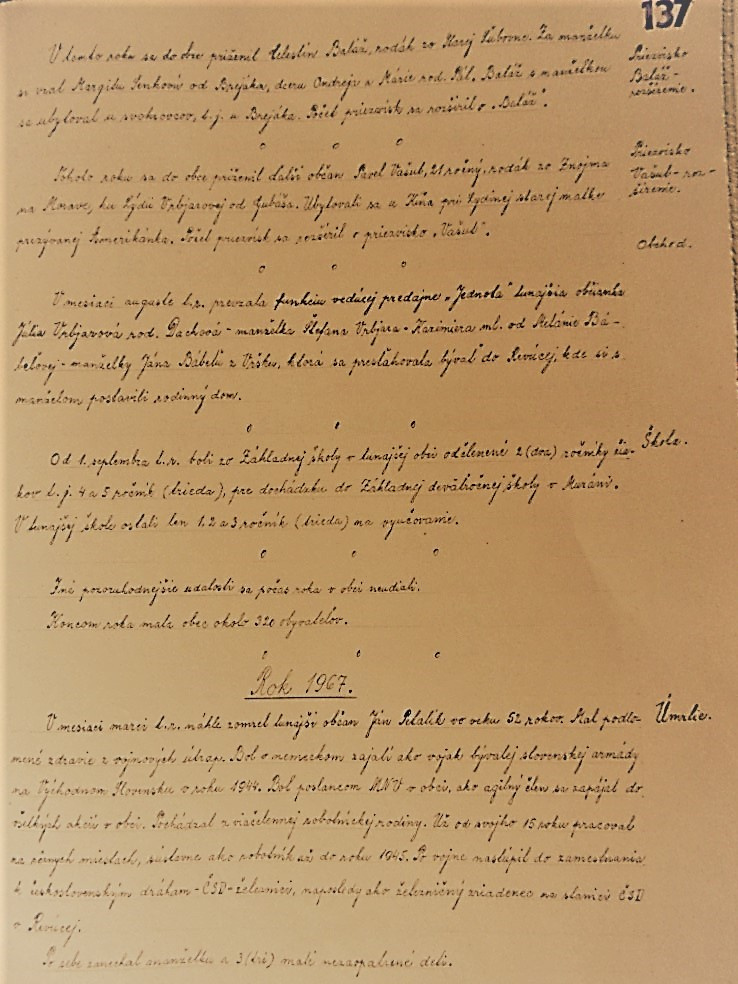 137
V tomto roku sa do obce priženil Celestín Baláž, rodák zo Starej Ľubovne. Za manželku
si vzal Margitu Senkovú od Brejáka, dcéru Ondreja a Márie rod. Pál. Baláž s manželkou
sa ubytoval u svokrovcov, t.j. u Brejáka. Počet priezvisk sa rozšíril o „Baláž".
Priezvisko
Baláž -
rozšírenie.
Tohoto roku sa do obce priženil ďalší občan Pavel Vašut, 21 ročný, rodák zo Znojma
na Morave, ku Lýdii Vrbjarovej od Gubáša. Ubytovali sa u Kíňa pri Lydinej starej matke
prezývanej Amerikánka. Počet priezvísk sa rozšíril o priezvisko „Vašut".
Priezvisko
Vašut - roz-
šírenie.
Obchod.
V mesiaci auguste t.r. prevzala funkciu vedúcej predajne „Jednota" tunajšia občianka
Júlia Vrbjarová rod. Dachová - manželka Štefana Vrbjara - Kazimiera ml. od Melánie Bá-
beľovej - manželky Jána Bábeľa z Vŕšku, ktorá sa presťahovala bývať do Revúcej, kde si s
manželom postavili rodinný dom.
Od 1. septembra t.r. boli zo Základnej školy v tunajšej obci odčlenené 2 (dva) ročníky žia-
kov t.j. 4 a 5 ročník (trieda), pre dochádzku do Základnej deväťročnej školy v Muráni.
V tunajšej škole ostali len 1. 2 a 3 ročník (trieda) na vyučovanie.
Škola.
Iné pozoruhodnejšie udalosti sa počas roka v obci neudiali.
Koncom roka mala obec okolo 320 obyvateľov.
Rok 1967.
V mesiaci marci t.r. náhle zomrel tunajší občan Ján Petalík vo veku 52 rokov. Mal podlo-
mené zdravie z vojnových útrap. Bol v nemeckom zajatí ako vojak bývalej slovenskej armády
na Východnom Slovensku v roku 1944. Bol poslancom MNV v obci, ako agilný člen sa zapájal do
všetkých akcií v obci. Pochádzal z viacčlennej robotníckej rodiny. Už od svojho 15 roku pracoval
na rôznych miestach, sústavne ako robotník až do roku 1945. Po vojne nastúpil do zamestnania
k československým dráham - ČSD - železnici, naposledy ako železničný zriadenec na stanici ČSD
v Revúcej.
Po sebe zanechal manželku a 3 (tri) malé nezaopatrené deti.
Úmrtie.